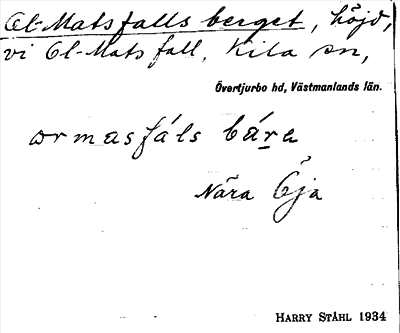 Ol-Matsfallsberget, höjd,
vi Ol-Mats fall, Kila sn,
Övertjurbo hd, Västmanlands län.
ormasfáls bárе
Nära Öja
HARRY STÅHL 1934